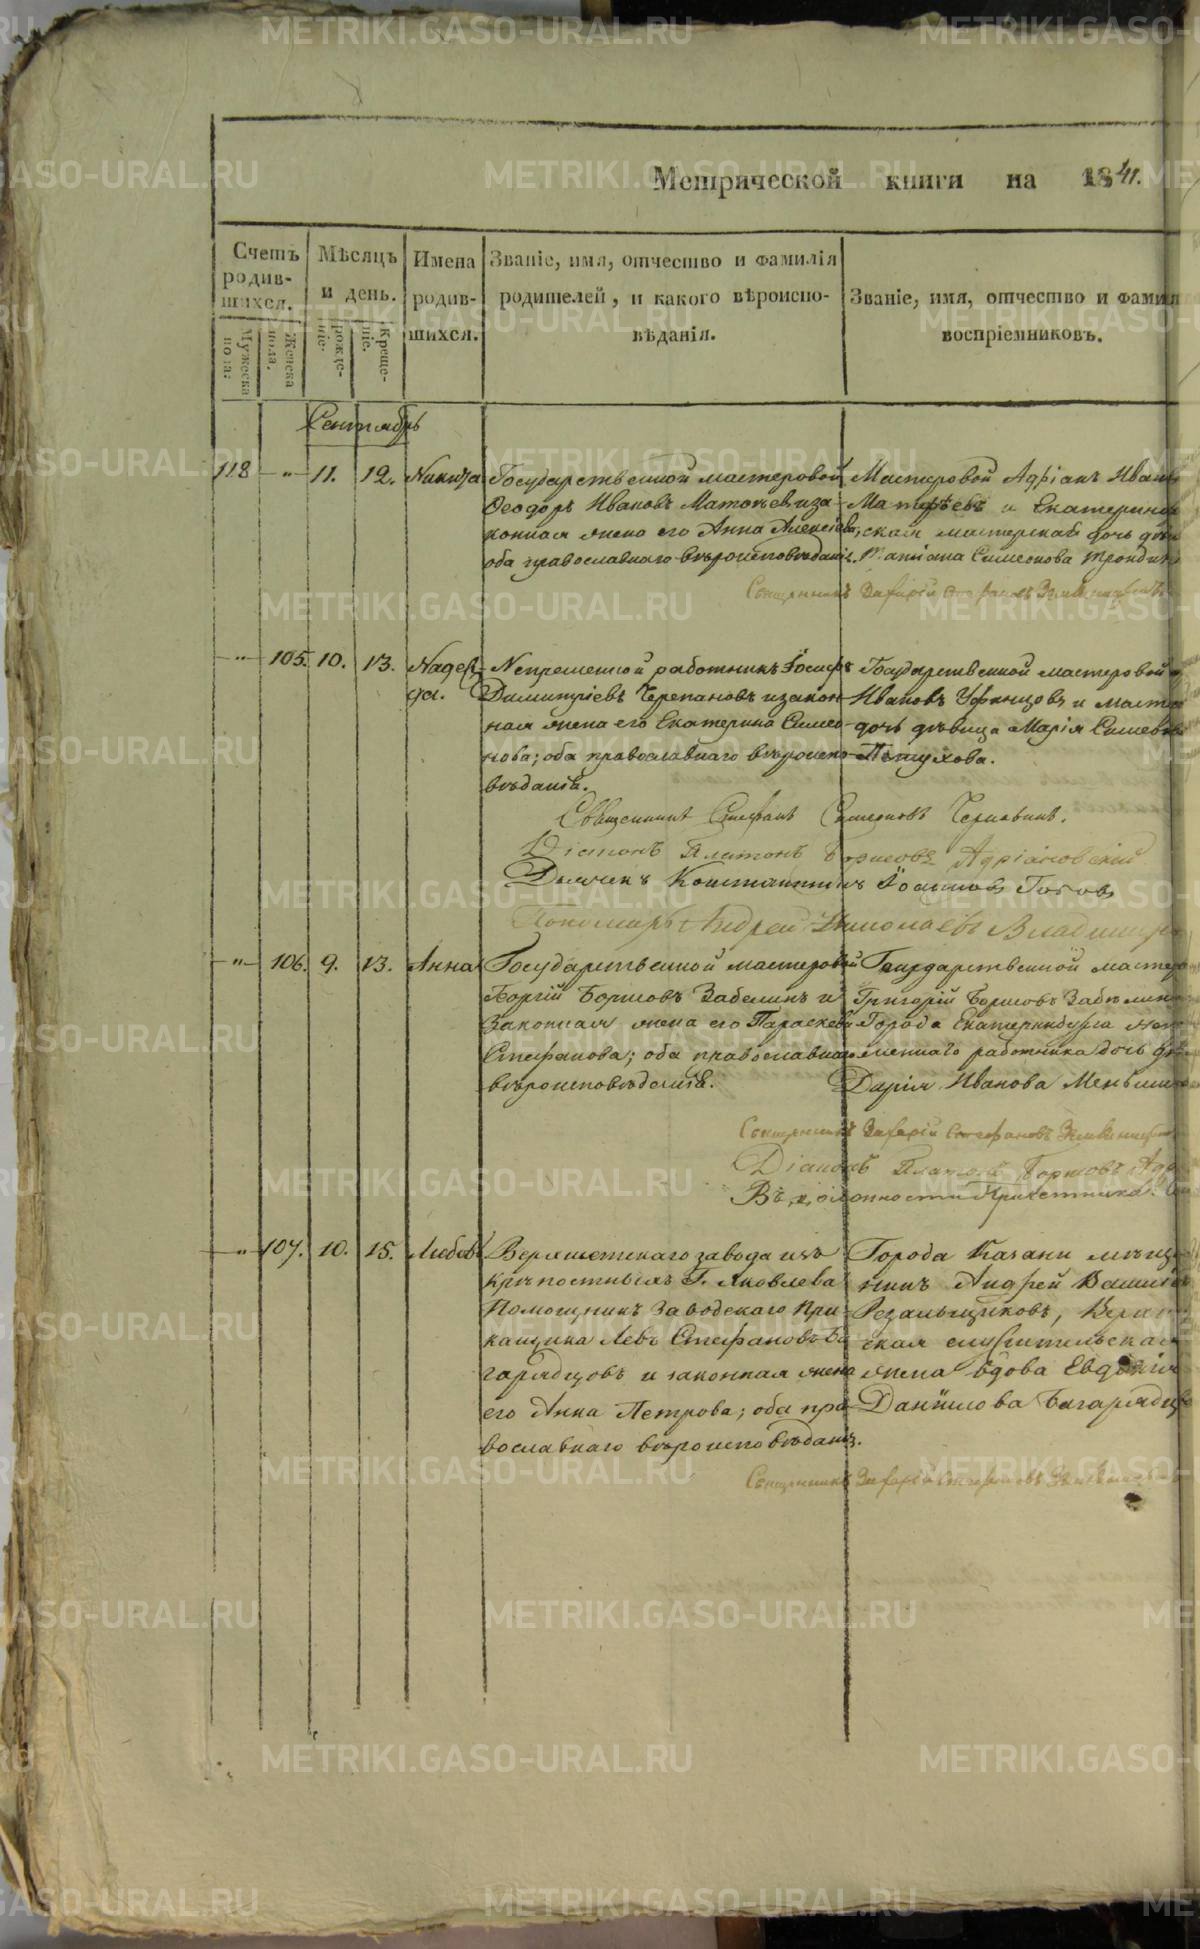 Метрической книги на 1841.
Счетъ родив-шихся.
Мужеска пола.
Женска пола.
Мѣсяцъ и день.
рожде-ніе.
Креще-ніе.
Имена родив-шихся.
Званіе, имя, отчество и фамилія
родителей, и какого вѣроиспо-
вѣданія.
Званіе, имя, отчество и фамил
воспріемниковъ.
Сентябрь
118 " 11. 12. Никита
Государственной мастеровой
Ѳеодоръ Ивановъ и за-
конная жена его Анна Алексіева,
оба православнаго вѣроисповѣданія.
Мастеровой Адріанъ Иван
и Екатерин
ская мастерская дочь
Симеонова
Священникъ Стефановъ
" 105. 10. 13. Надеж-
да.
Непременной работникъ Іосифъ
Димитріевъ Черепановъ и закон-
ная жена его Екатерина Симео-
нова; оба православнаго вѣроиспо-
вѣданія.
Государственной мастеровой
Ивановъ Уфинцовъ и масте
дочь дѣвица Марія Симеоно
Петухова.
Священникъ Стефанъ Симеоновъ
Діаконъ Платонъ Борисовъ Адріановскій
Дьячекъ Константинъ Іоанновъ
Пономарь Андрей Николаевъ Владимир
" 106. 9. 13. Анна
Государственной мастеровой
Георгій Борисовъ Забелинъ и
законная жена его Параскева
Стефанова; оба православнаго
вѣроисповѣданія.
Государственной мастеро
Григорій Борисовъ Забѣлин
Города Екатеринбурга непре
меннаго работника дочь дѣ
Дарія Иванова Меньши
Священникъ Стефановъ
Діаконъ Платонъ Борисовъ Адр
Въ должности Причетника
" 107. 10. 15. Любовь
Верхисетскаго завода изъ
крѣпостныхъ Г. Яковлева
Помощникъ Заводскаго При-
кащика Левъ Стефановъ Ба
гарядцовъ и законная жена
его Анна Петрова; оба пра-
вославнаго вѣроисповѣданія.
Города Казани мѣща
нинъ Андрей
Резальщиковъ, Верхи
ская служительская
жена вдова Евдокія
Даніилова Багарядцо
Священникъ
METRIKI.GASO-URAL.RU